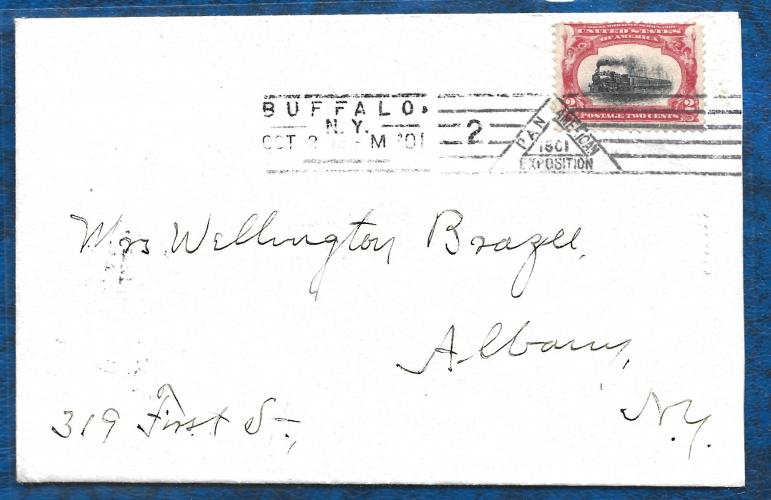 COMMEMORATIVE SERIES 1901
UNITED STATES
OF AMERICA
2 2
POSTAGE TWO CENTS
BUFFALO,
N.Y.
OCT M '01
2
PAN AMERICAN
1901
EXPOSITION
Mrs Wellington Brazee,
Albany,
319 First St., N.Y.